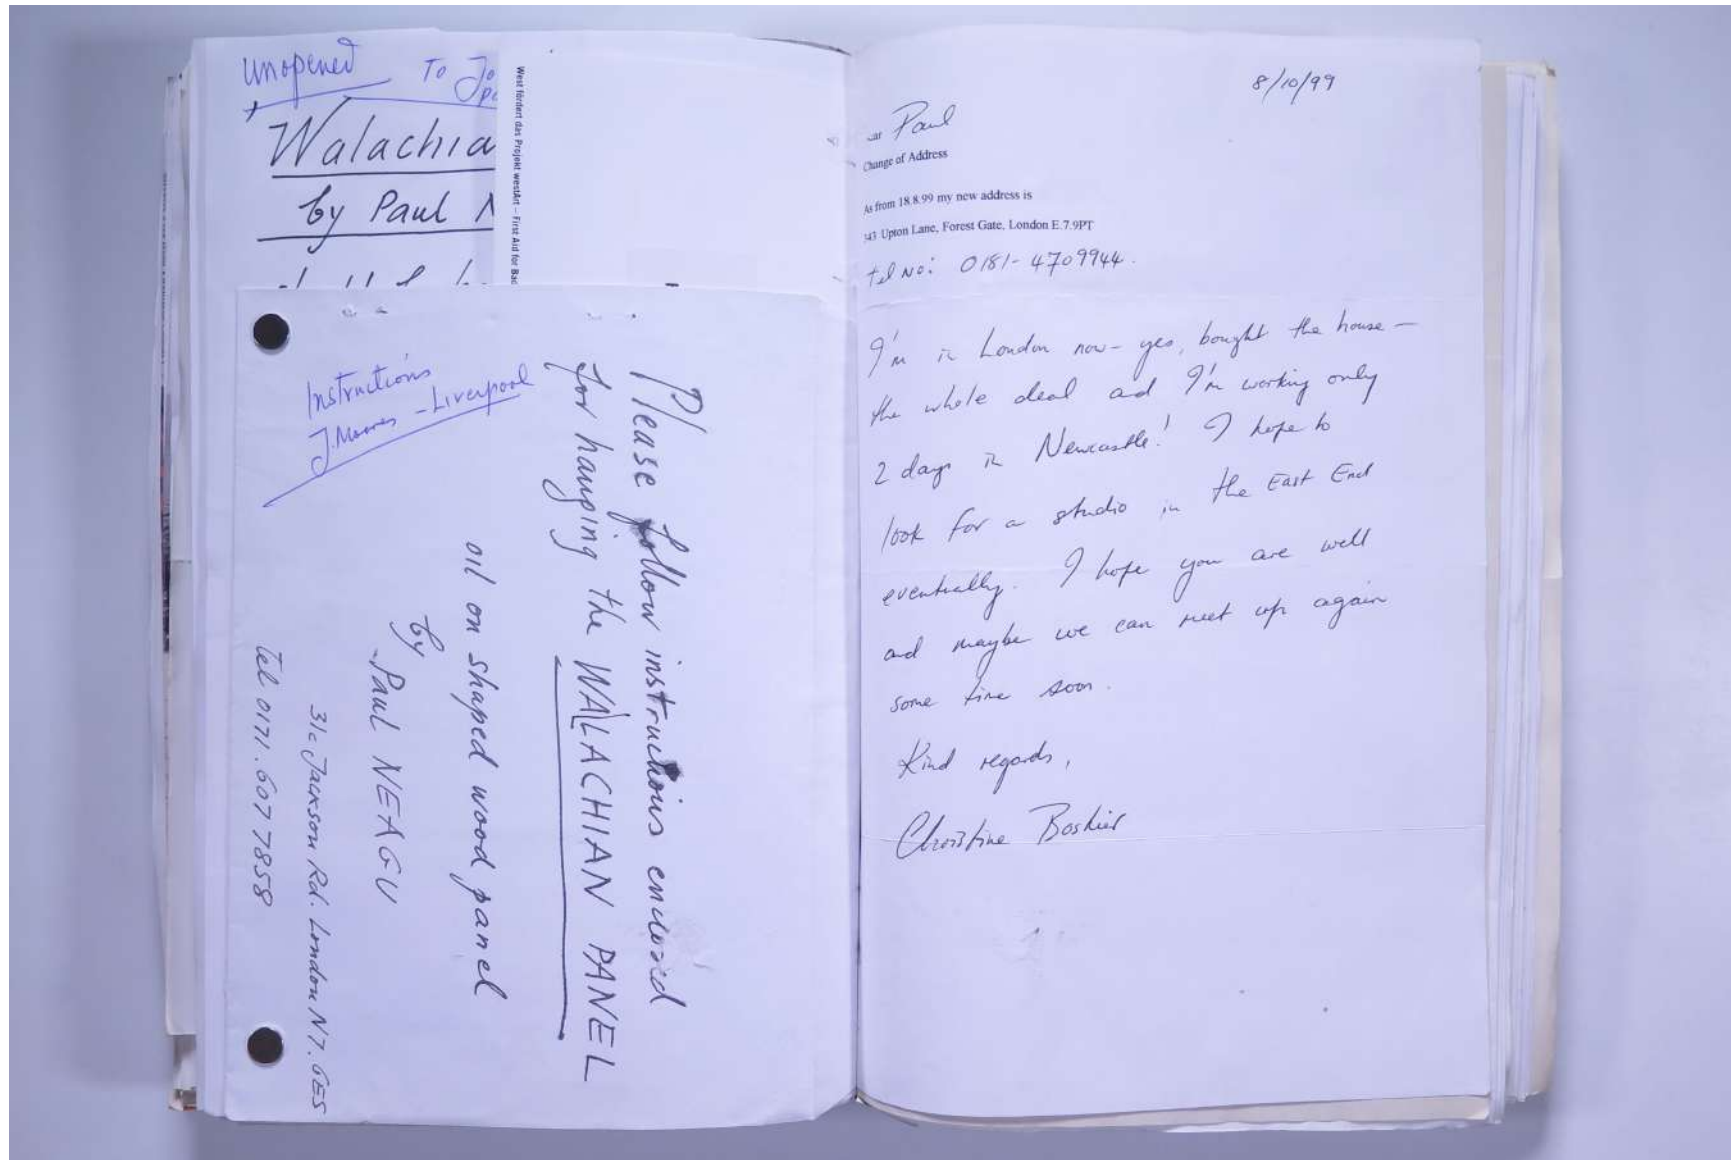 unopened To Jo
Walachia
by Paul N
West fördert das Projekt westArt – First Aid for Bad
Instructions
J. Moores - Liverpool
Please follow instructions enclosed
for hanging the WALACHIAN PANEL
oil on shaped wood panel
by
Paul NEAGU
31c Jackson Rd. London N7. 6ES
Tel 0171. 607 7858
8/10/99
ear Paul
Change of Address
As from 18.8.99 my new address is
343 Upton Lane, Forest Gate, London E.7.9PT
tel no: 0181- 4709944.
I'm in London now - yes, bought the house -
the whole deal and I'm working only
2 days in Newcastle! I hope to
look for a studio in the East End
eventually. I hope you are well
and maybe we can meet up again
some time soon.
Kind regards,
Christine Boshier